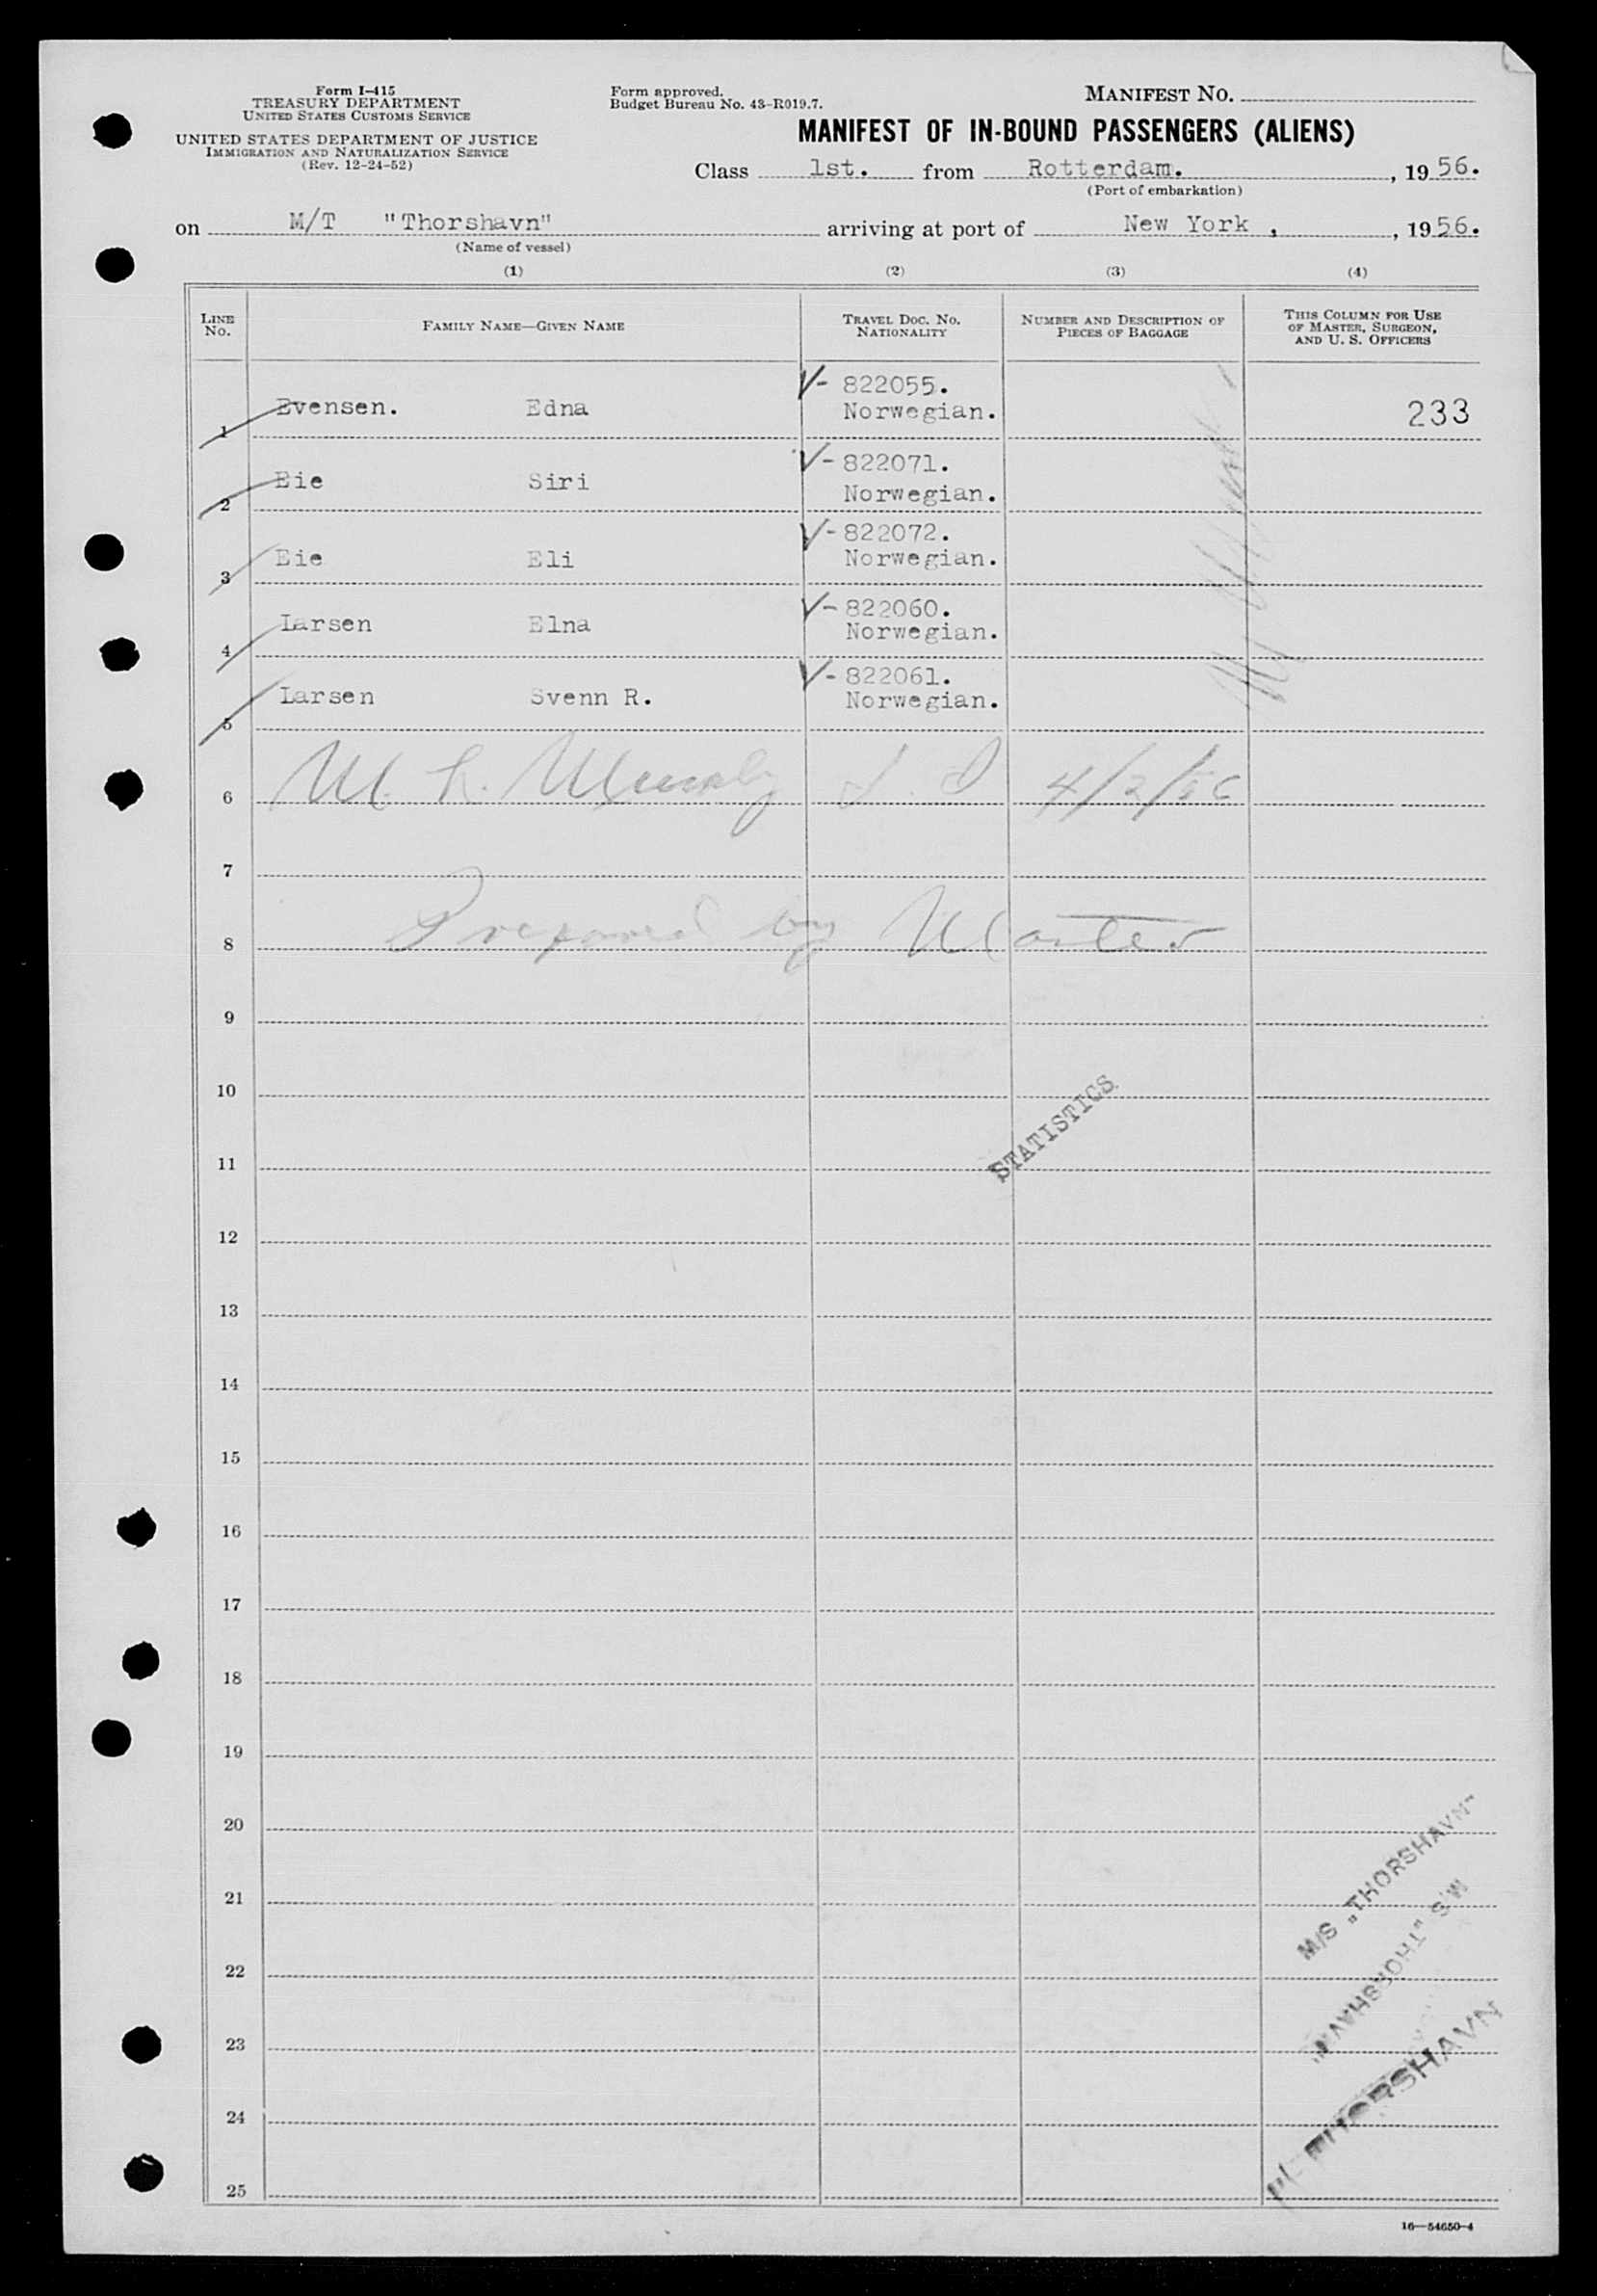 Form I-415
TREASURY DEPARTMENT
UNITED STATES CUSTOMS SERVICE
UNITED STATES DEPARTMENT OF JUSTICE
IMMIGRATION AND NATURALIZATION SERVICE
(Rev. 12-24-52)
Form approved.
Budget Bureau No. 43-R019.7.
MANIFEST NO.
MANIFEST OF IN-BOUND PASSENGERS (ALIENS)
Class 1st. from Rotterdam. , 1956.
(Port of embarkation)
on M/T "Thorshavn" arriving at port of New York , , 1956.
(Name of vessel)
(1) (2) (3) (4)
LINE NO. FAMILY NAME—GIVEN NAME TRAVEL DOC. NO. NATIONALITY NUMBER AND DESCRIPTION OF PIECES OF BAGGAGE THIS COLUMN FOR USE OF MASTER, SURGEON, AND U. S. OFFICERS
1 Evensen. Edna V- 822055. Norwegian. 233
2 Eie Siri V- 822071. Norwegian.
3 Eie Eli V- 822072. Norwegian.
4 Larsen Elna V- 822060. Norwegian.
5 Larsen Svenn R. V- 822061. Norwegian.
6 4/2/56
7
8 Prepared by Master
9
10
STATISTICS
11
12
13
14
15
16
17
18
19
20
M/S "THORSHAVN"
21
M.S "THORSHAVN"
22
23
THORSHAVN
24
25
16—54650-4